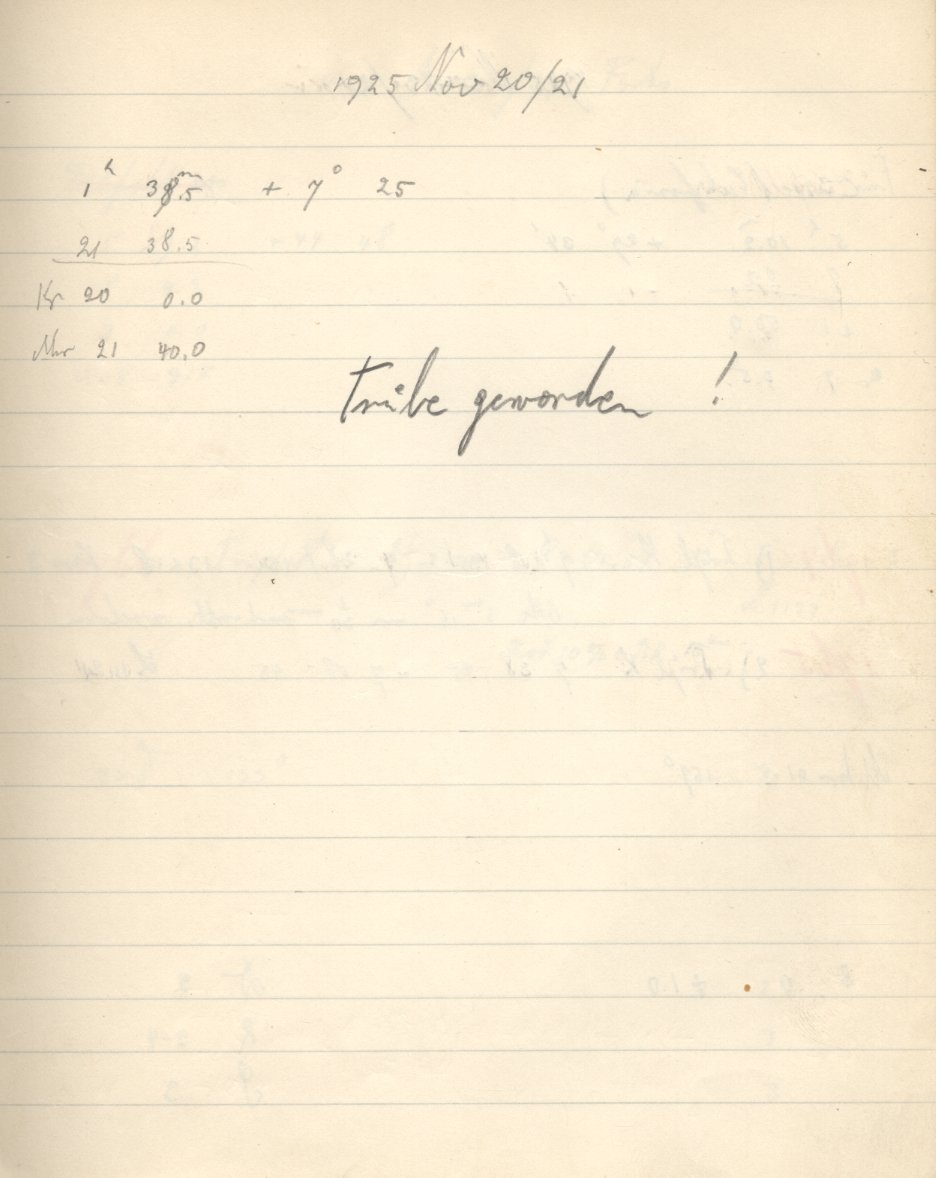 1925 Nov 20/21
1ʰ 38.5ᵐ + 7° 25
21 38.5
Kr 20 0.0
Uhr 21 40.0
Trübe geworden !